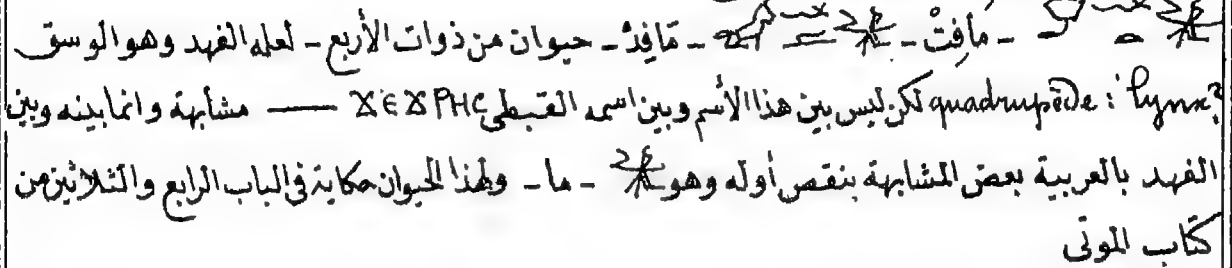 - مافِتْ - - مَافِدْ - حيوان من ذوات الأربع - لعله الفهد وهو الوسق
quadrupède : lynx? لكن ليس بين هذا الأسم وبين اسمه القبطى — مشابهة وانما بينه وبين
الفهد بالعربية بعض المشابهة بنقص أوله وهو - ما - ولهذا الحيوان حكاية فى الباب الرابع والثلاثين من
كتاب الموتى